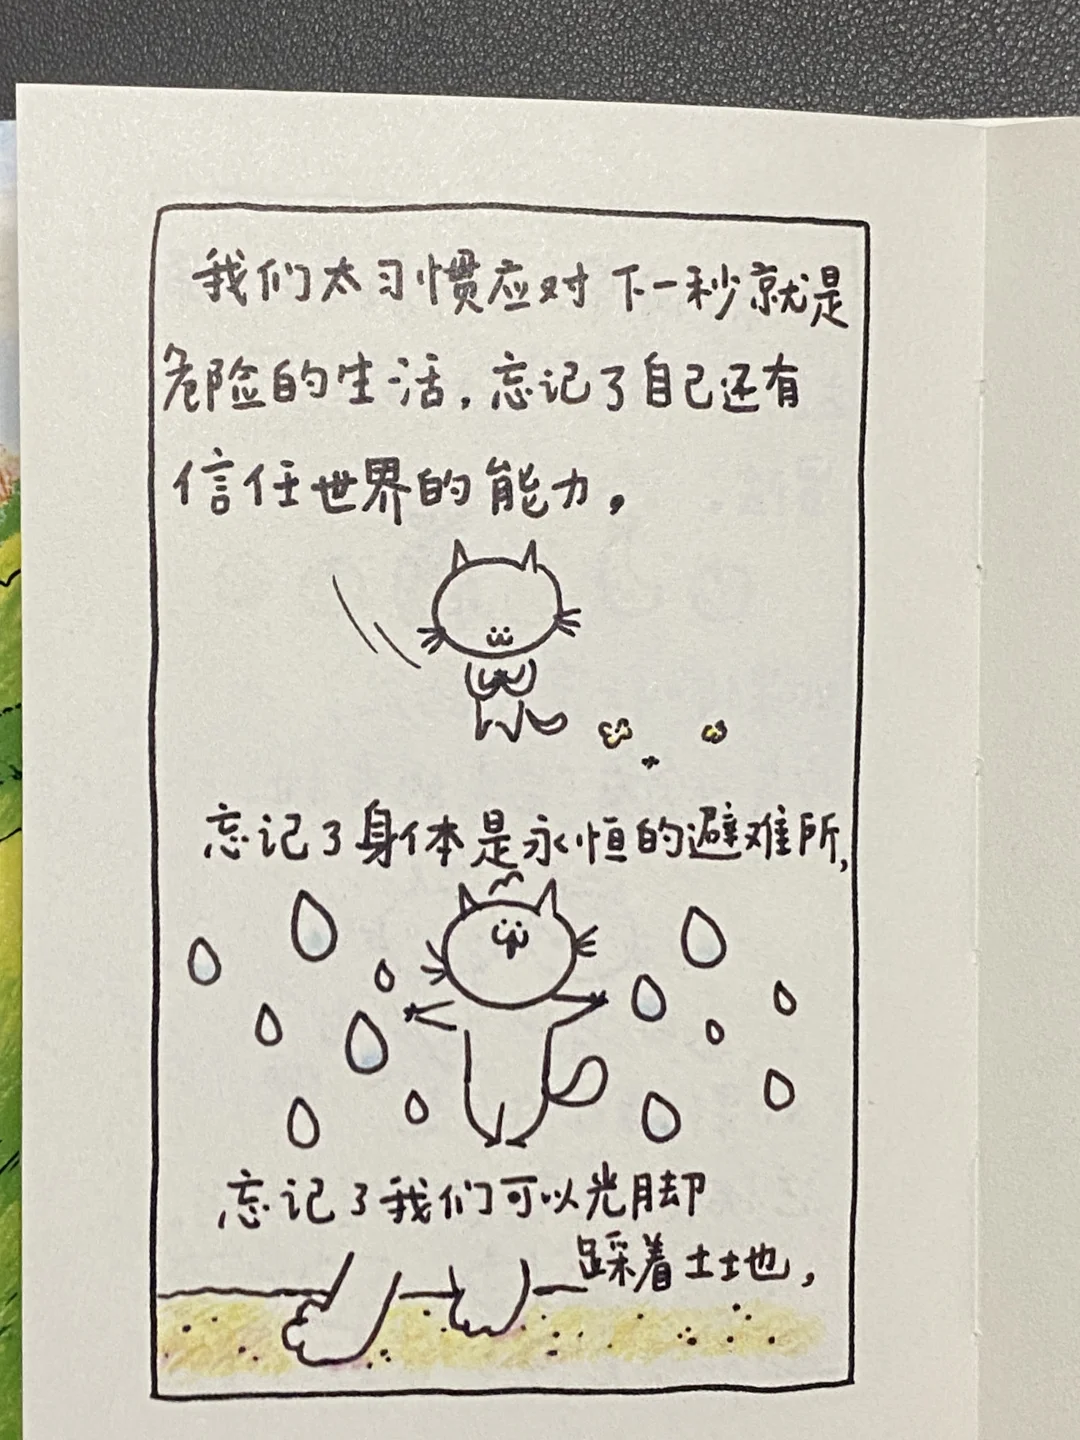 我们太习惯应对下一秒就是
危险的生活，忘记了自己还有
信任世界的能力。
忘记了身体是永恒的避难所，
忘记了我们可以光脚
踩着土地，